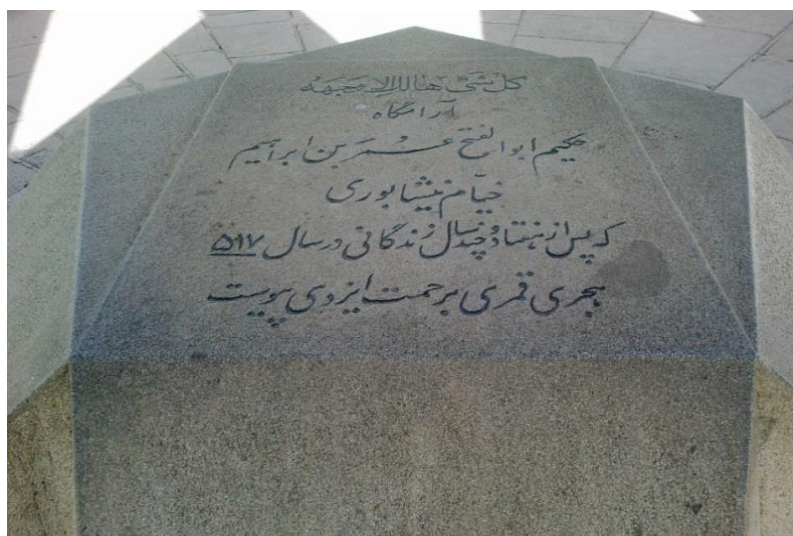 کل شیء هالک الا وجهه
آرامگاه
حکیم ابوالفتح عُمَر بن ابراهیم
خیّام نیشابوری
که پس از هفتاد و چند سال زندگانی در سال ۵۱۷
هجری قمری برحمت ایزدی پیوست